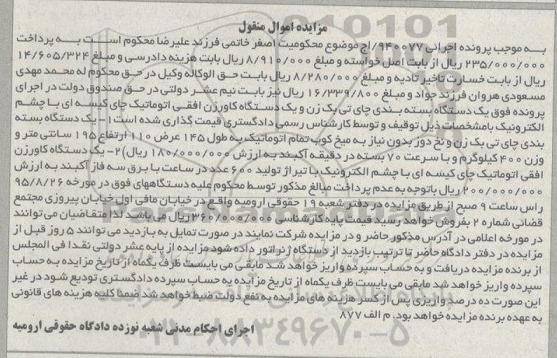 مزایده اموال منقول
به موجب پرونده اجرائی 940077/اج موضوع محکومیت اصغر خاتمی فرزند علیرضا محکوم است به پرداخت
235/000/000 ریال از بابت اصل خواسته و مبلغ 8/910/000 ریال بابت هزینه دادرسی و مبلغ 14/605/324
ریال از بابت خسارت تاخیر تادیه و مبلغ 8/280/000 ریال بابت حق الوکاله وکیل در حق محکوم له محمد مهدی
مسعودی هروان فرزند جواد و مبلغ 16/339/800 ریال نیز بابت نیم عشر دولتی در حق صندوق دولت در اجرای
پرونده فوق یک دستگاه بسته بندی چای تی بک زن و یک دستگاه کاورزن افقی اتوماتیک چای کیسه ای با چشم
الکترونیک بامشخصات ذیل توقیف و توسط کارشناس رسمی دادگستری قیمت گذاری شده است 1- یک دستگاه بسته
بندی چای تی بک زن و نخ دوز بدون نیاز به میخ کوب تمام اتوماتیک به طول 145 عرض 110 ارتفاع 195 سانتی متر و
وزن 400 کیلوگرم و با سرعت 70 بسته در دقیقه آکبند به ارزش 180/000/000 ریال) 2- یک دستگاه کاورزن
افقی اتوماتیک چای کیسه ای با چشم الکترونیک با تیراژ تولید 600 عدد در ساعت با برق سه فاز آکبند به ارزش
200/000/000 ریال باتوجه به عدم پرداخت مبالغ مذکور توسط محکوم علیه دستگاههای فوق در مورخه 95/8/26
راس ساعت 9 صبح از طریق مزایده در دفتر شعبه 19 حقوقی ارومیه واقع در خیابان مافی اول خیابان پیروزی مجتمع
قضائی شماره 2 بفروش خواهد رسید قیمت پایه کارشناسی 360/000/000 ریال می باشد لذا متقاضیان می توانند
در مورخه اعلامی در آدرس مذکور حاضر و در مزایده شرکت نمایند در صورت تمایل به بازدید می توانند 5 روز قبل از
مزایده در دفتر دادگاه حاضر تا ترتیب بازدید از دستگاه ژنراتور داده شود مزایده از پایه عشر دولتی نقدا فی المجلس
از برنده مزایده دریافت و به حساب سپرده واریز خواهد شد مابقی می بایست ظرف یکماه از تاریخ مزایده به حساب
سپرده واریز خواهد شد مابقی می بایست ظرف یکماه از تاریخ مزایده به حساب سپرده دادگستری تودیع شود در غیر
این صورت ده در صد واریزی پس از کسر هزینه های مزایده به نفع دولت ضبط خواهد شد ضمنا کلیه هزینه های قانونی
به عهده برنده مزایده خواهد بود. م الف 877
اجرای احکام مدنی شعبه نوزده دادگاه حقوقی ارومیه
021-88349670-5